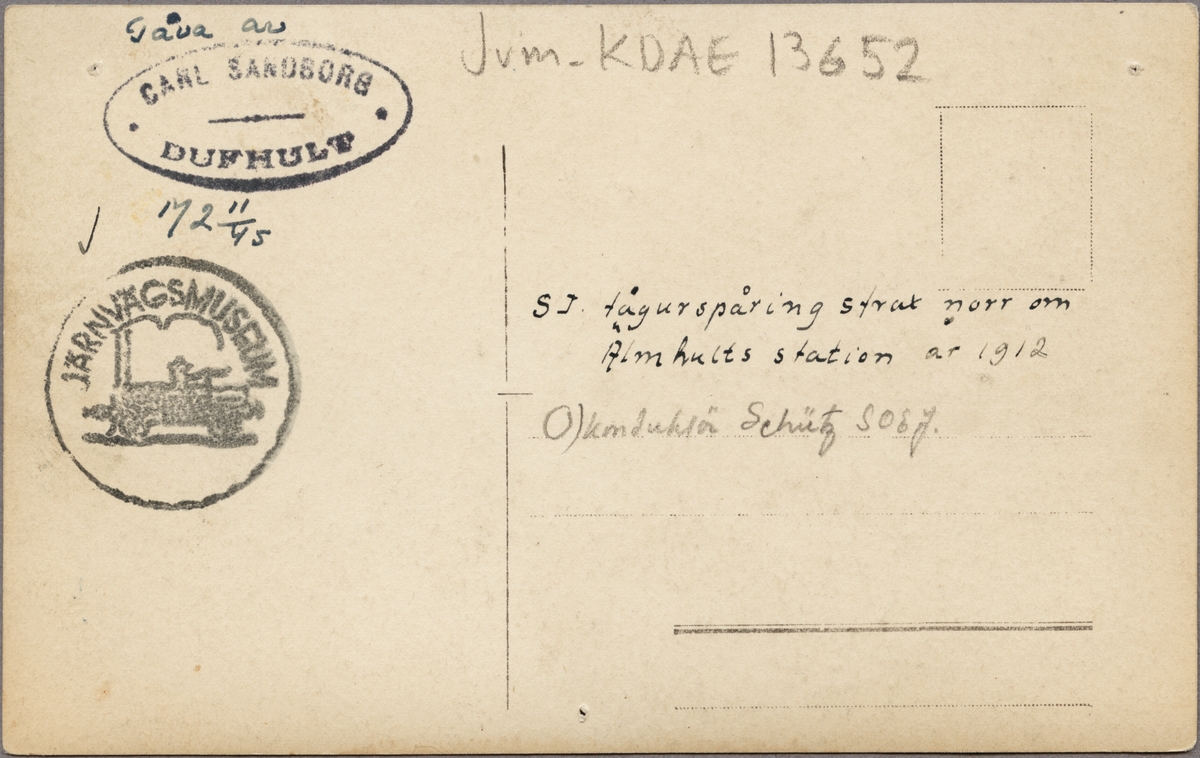 Gåva av
CARL SANDBORG
DUFHULT
172 11/45
JÄRNVÄGSMUSEUM
Jvm-KDAE 13652
SJ. tågurspåring strax norr om
Älmhults station år 1912
O) konduktör Schütz SOEJ.